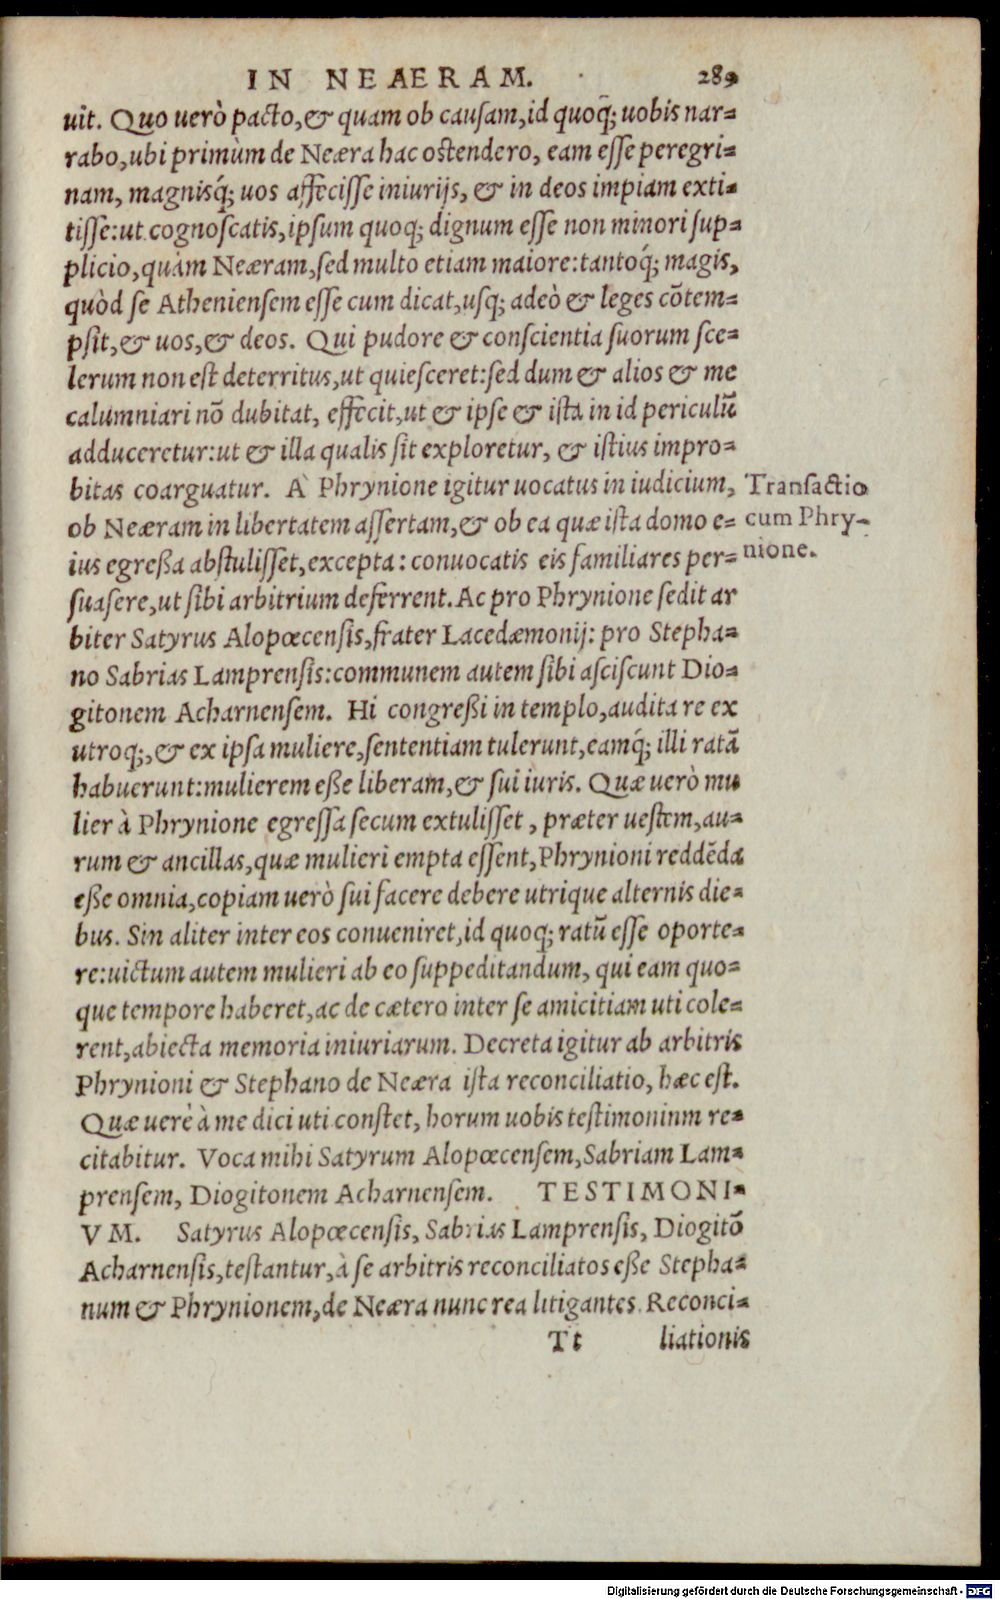 IN NEAERAM. 289
uit. Quo uerò pacto,& quam ob causam,id quoq̃; uobis nar-
rabo,ubi primùm de Neæra hac ostendero, eam esse peregri-
nam, magnisq́; uos affecisse iniurijs, & in deos impiam exti-
tisse:ut cognoscatis,ipsum quoq; dignum esse non minori sup-
plicio,quàm Neæram,sed multo etiam maiore:tantoq́; magis,
quòd se Atheniensem esse cum dicat,usq; adeò & leges cõtem-
psit,& uos,& deos. Qui pudore & conscientia suorum sce-
lerum non est deterritus,ut quiesceret:sed dum & alios & me
calumniari nõ dubitat, effecit,ut & ipse & ista in id periculũ
adduceretur:ut & illa qualis sit exploretur, & istius impro-
bitas coarguatur. A Phrynione igitur uocatus in iudicium,
ob Neæram in libertatem assertam,& ob ea quæ ista domo e-
ius egreßa abstulisset,excepta: conuocatis eis familiares per-
suasere,ut sibi arbitrium deferrent. Ac pro Phrynione sedit ar
biter Satyrus Alopœcensis,frater Lacedæmonij: pro Stepha-
no Sabrias Lamprensis:communem autem sibi asciscunt Dio-
gitonem Acharnensem. Hi congreßi in templo,audita re ex
utroq;,& ex ipsa muliere,sententiam tulerunt,eamq́; illi ratã
habuerunt:mulierem eße liberam,& sui iuris. Quæ uerò mu
lier à Phrynione egressa secum extulisset, præter uestem,au-
rum & ancillas,quæ mulieri empta essent,Phrynioni reddẽda
eße omnia,copiam uerò sui facere debere utrique alternis die-
bus. Sin aliter inter eos conueniret,id quoq; ratũ esse oporte-
re:uictum autem mulieri ab eo suppeditandum, qui eam quo-
que tempore haberet,ac de cætero inter se amicitiam uti cole-
rent,abiecta memoria iniuriarum. Decreta igitur ab arbitris
Phrynioni & Stephano de Neæra ista reconciliatio, hæc est.
Quæ uerè à me dici uti constet, horum uobis testimoninm re-
citabitur. Voca mihi Satyrum Alopœcensem,Sabriam Lam-
prensem, Diogitonem Acharnensem. TESTIMONI-
VM. Satyrus Alopœcensis, Sabrias Lamprensis, Diogitõ
Acharnensis,testantur,à se arbitris reconciliatos eße Stepha-
num & Phrynionem,de Neæra nunc rea litigantes. Reconci-
Tt liationis
Transactio
cum Phry-
nione.
Digitalisierung gefördert durch die Deutsche Forschungsgemeinschaft - DFG